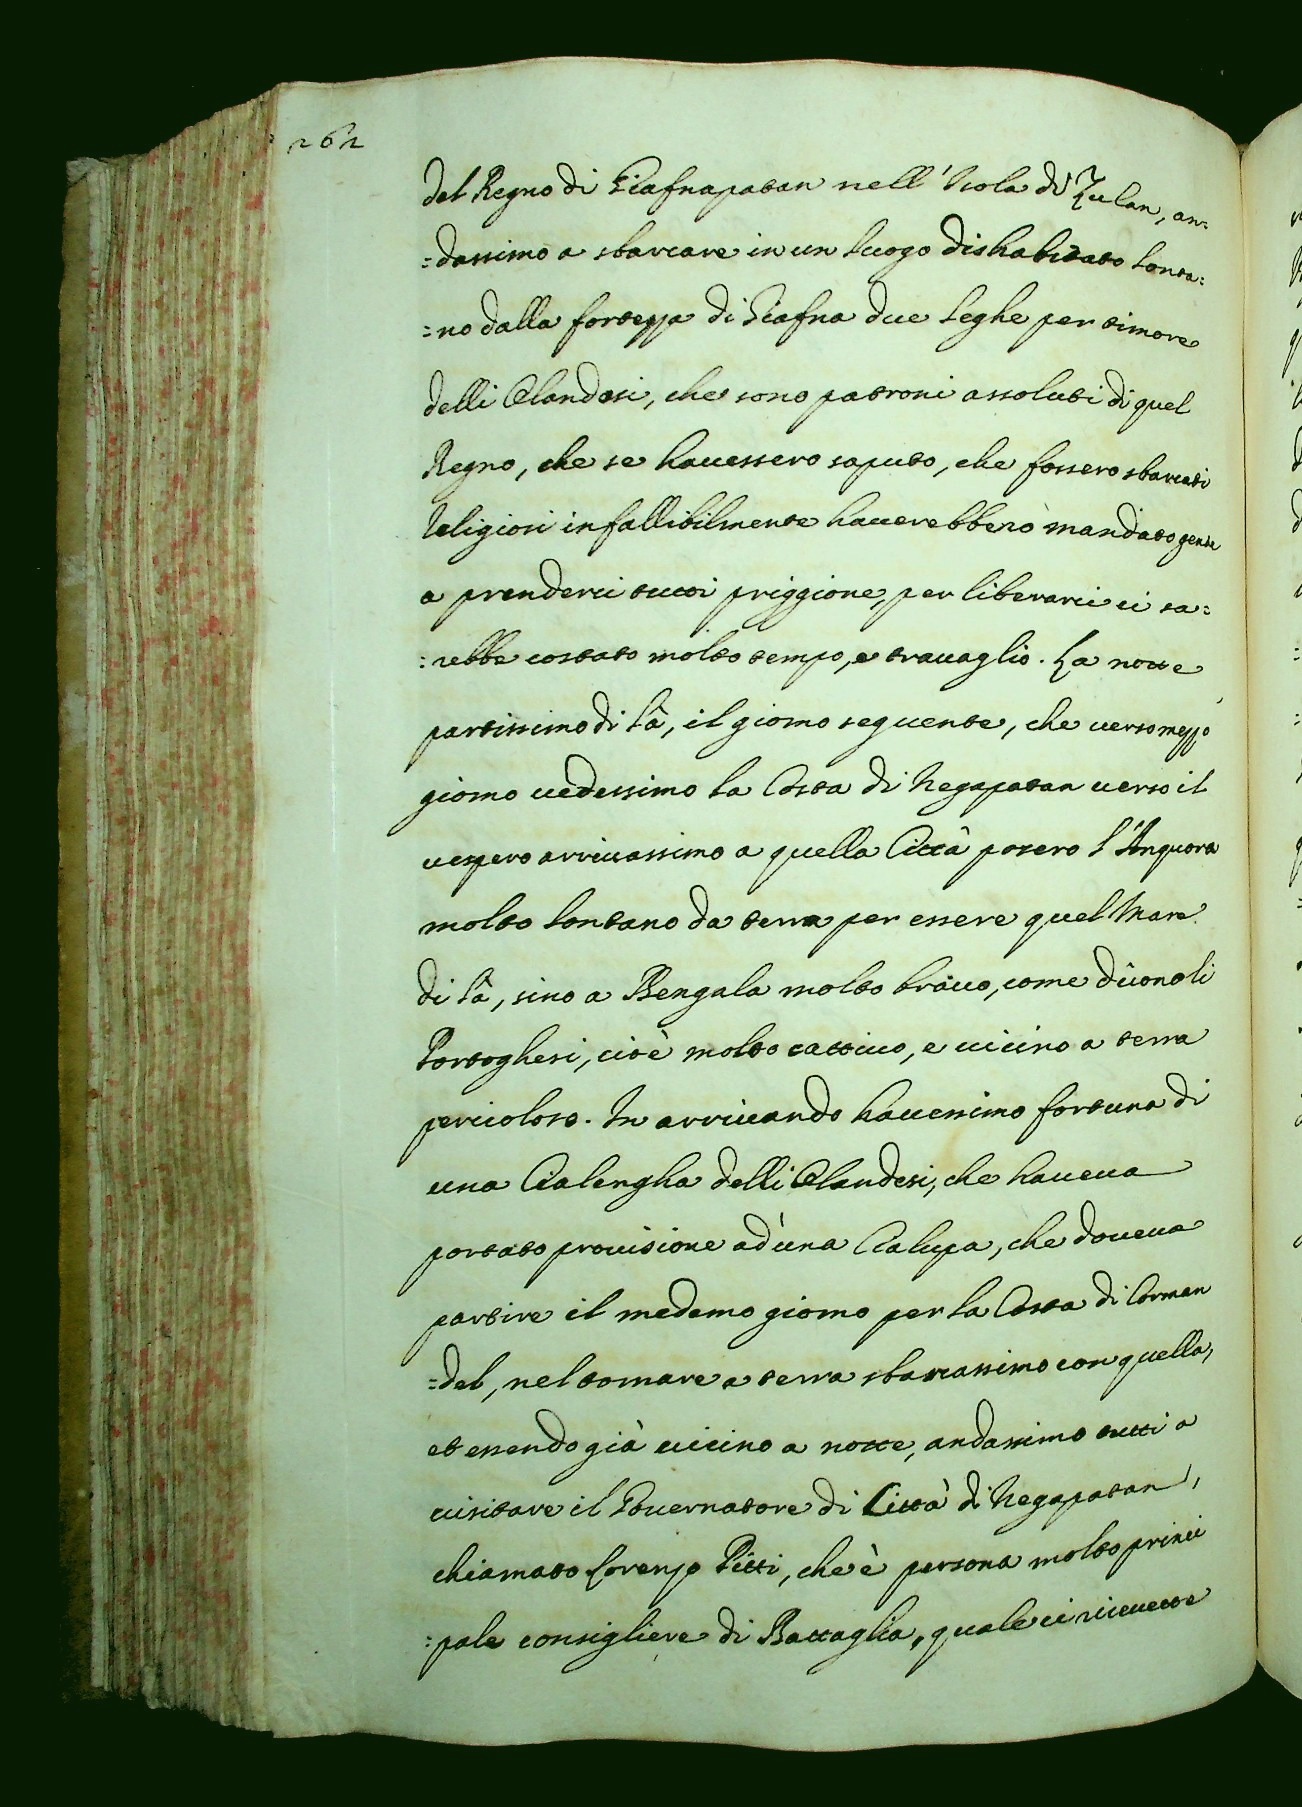 262
del Regno di Giafnapatan nell'Isola di Zeilan, an:
=dassimo a sbarcare in un luogo dishabitato lonta:
=no dalla fortezza di Giafna due leghe per timore
delli Olandesi, che sono patroni assoluti di quel
Regno, che se hauessero saputo, che fossero sbarcati
religiosi infallibilmente hauerebbero mandato gente
a prenderci tutti priggione, per liberarci ci sa:
:rebbe costato molto tempo, e trauaglio. La notte
partissimo di là, il giorno seguente, che uerso mezzo
giorno uedessimo la Costa di Negapatan uerso il
uespero arriuassimo a quella Città posero l'Anquora
molto lontano da terra per essere quel Mare
di là, sino a Bengala molto brauo, come dicono li
Portoghesi, cioè molto cattiuo, e uicino a terra
pericoloso. In arriuando hauessimo fortuna di
una Cialengha delli Olandesi, che haueua
portato prouisione ad una Cialupa, che doueua
partire il medemo giorno per la Costa di Corman
=del, nel tornare a terra sbarcassimo con quella,
et essendo già uicino a notte, andassimo tutti a
uisitare il Gouernatore di Città di Negapatan,
chiamato Lorenzo Pitti, che è persona molto princi
:pale consigliere di Battaglia, quale ci riceuette